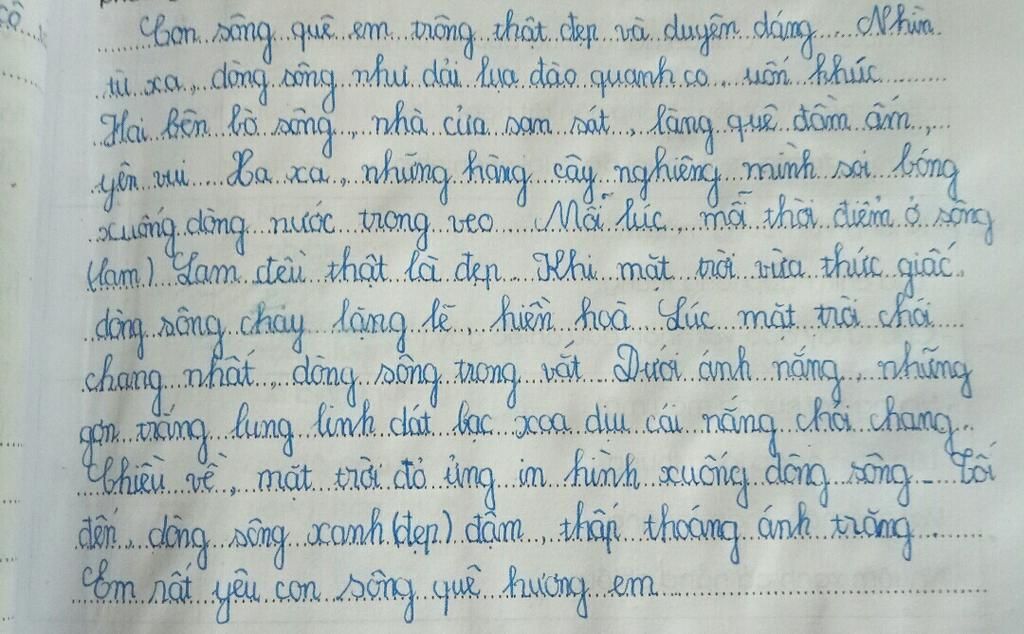 Con sông quê em trông thật đẹp và duyên dáng. Nhìn
từ xa, dòng sông như dải lụa đào quanh co, uốn khúc.
Hai bên bờ sông, nhà cửa san sát, làng quê đầm ấm,
yên vui. Xa xa, những hàng cây nghiêng mình soi bóng
xuống dòng nước trong veo. Mỗi lúc, mỗi thời điểm ở sông
(lam) Lam đều thật là đẹp. Khi mặt trời vừa thức giấc,
dòng sông chảy lặng lẽ, hiền hoà. Lúc mặt trời chói
chang nhất, dòng sông trong vắt. Dưới ánh nắng, những
gợn trắng lung linh dát bạc xoa dịu cái nắng chói chang.
Chiều về, mặt trời đỏ ửng in hình xuống dòng sông. Tối
đến, dòng sông xanh (đẹp) đậm, thấp thoáng ánh trăng.
Em rất yêu con sông quê hương em.